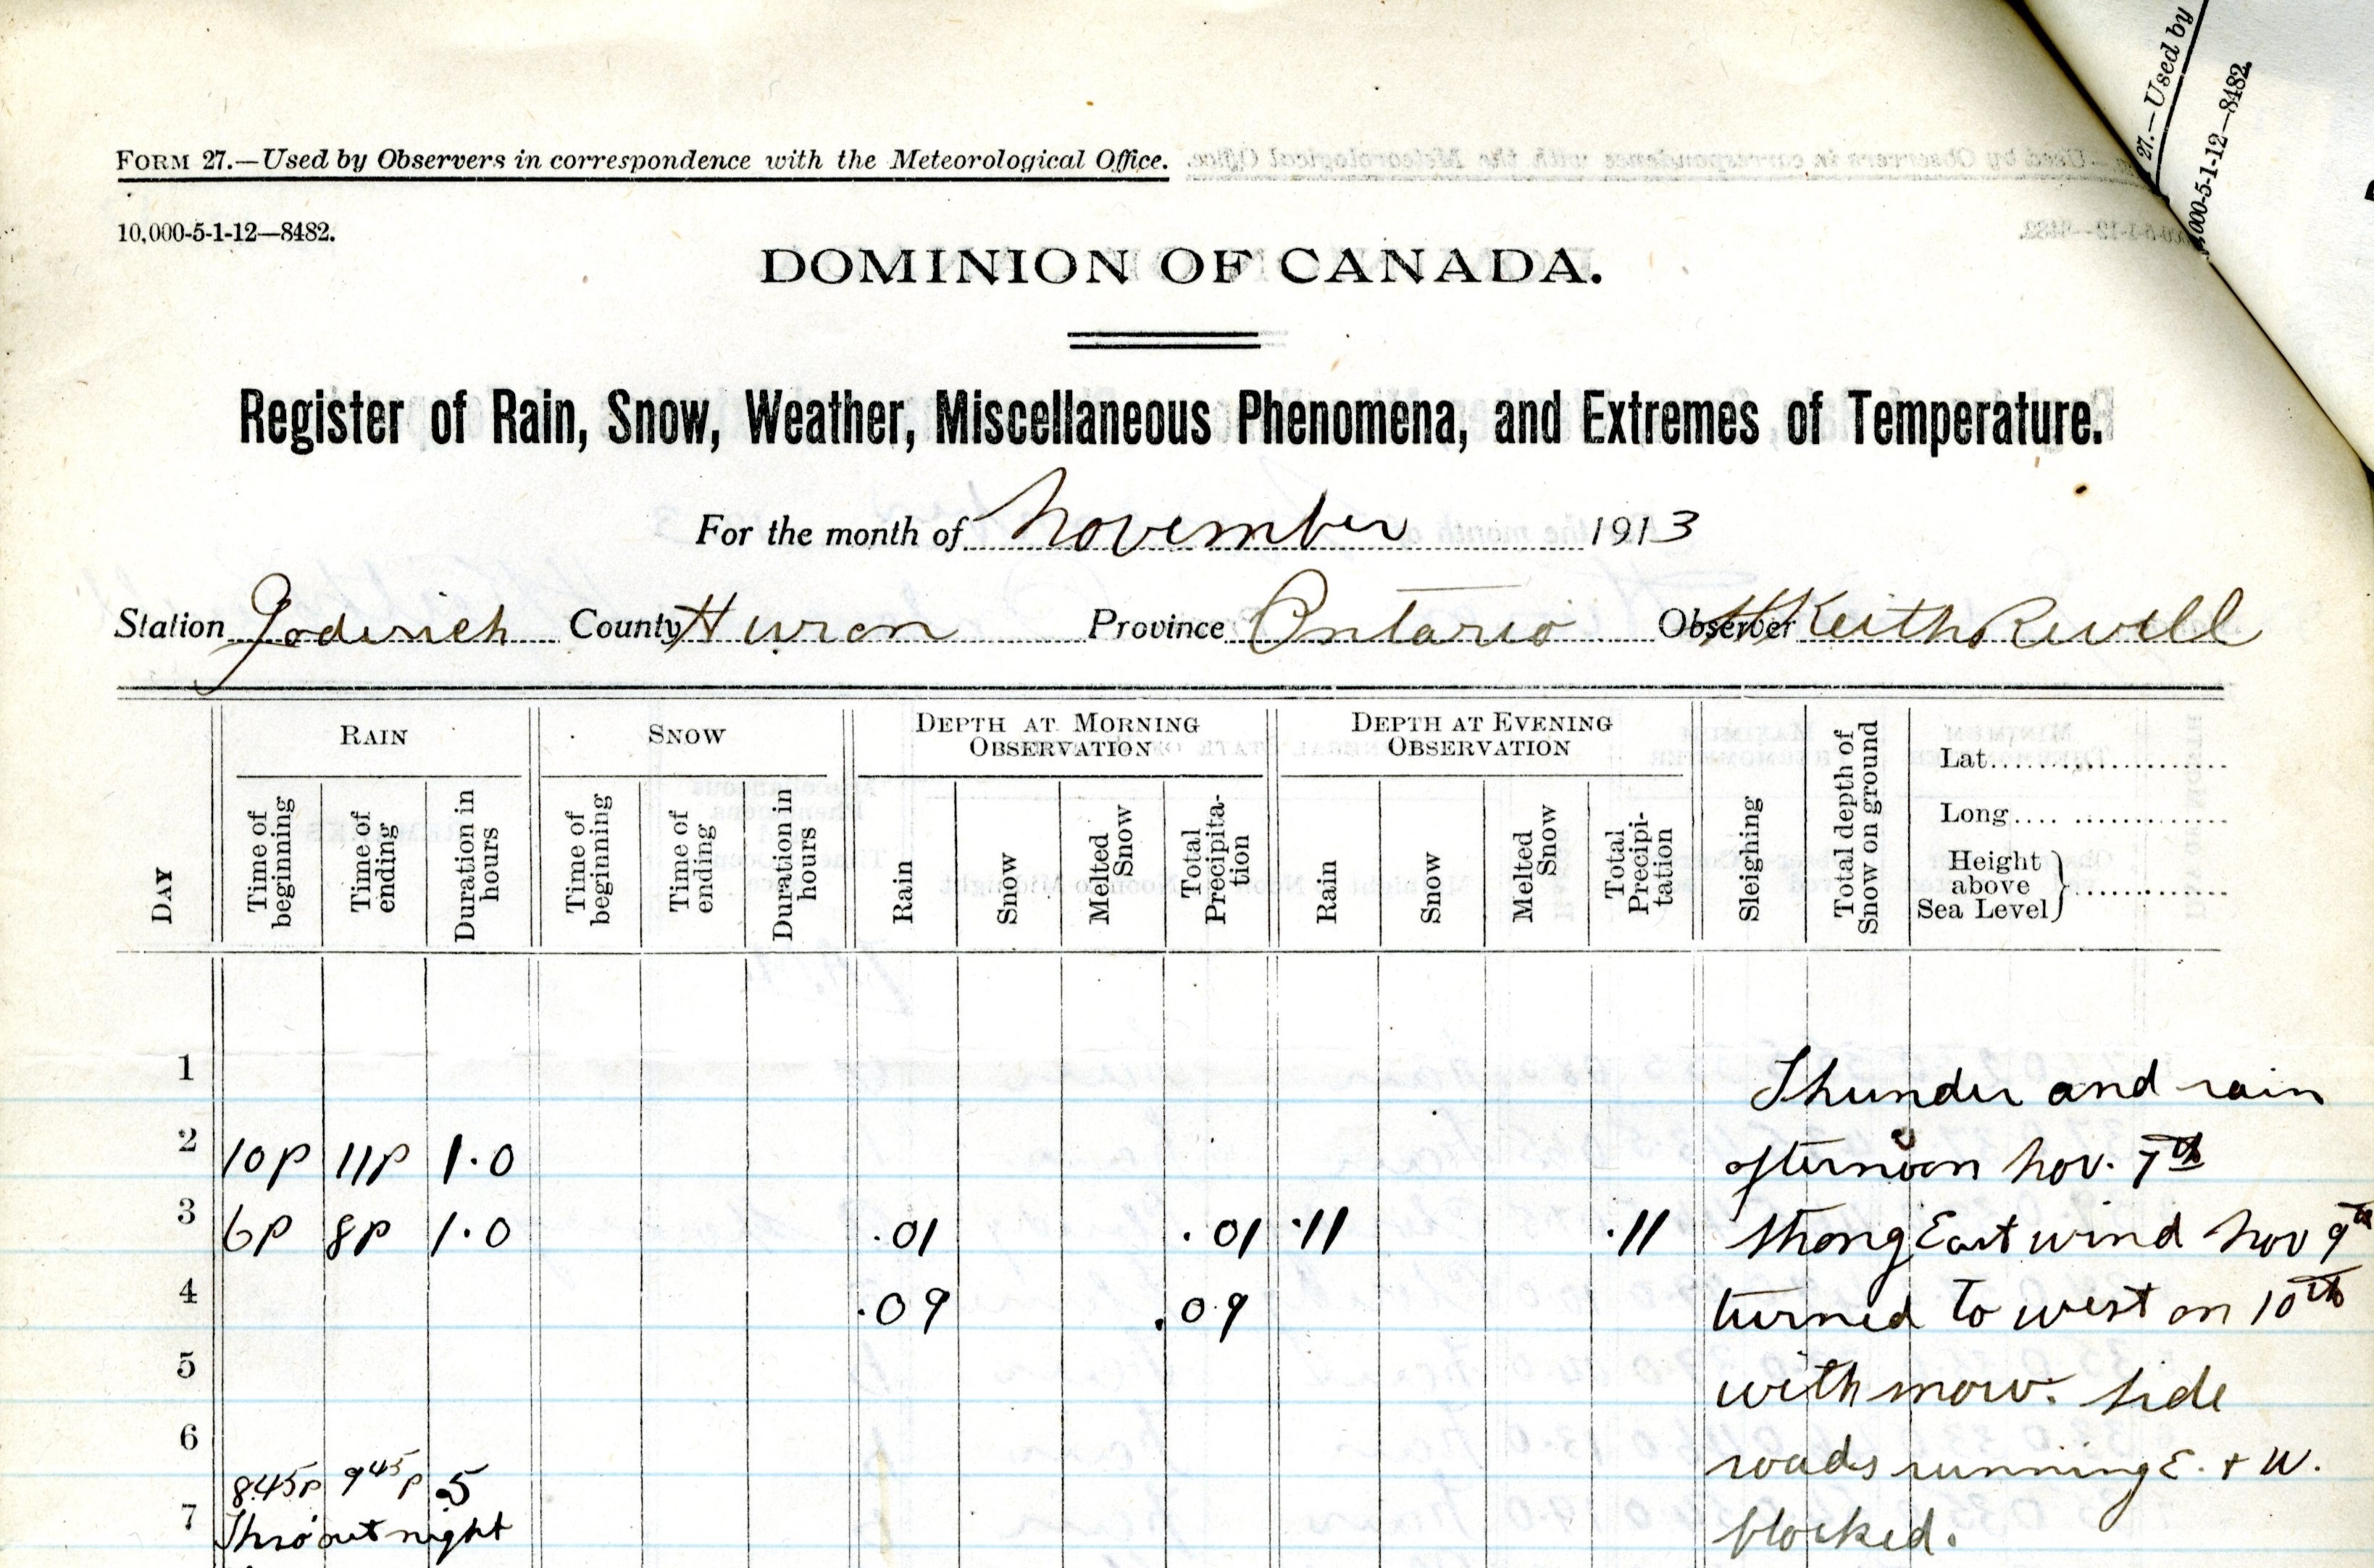 27.—Used by
,000-5-1-12—8482.
FORM 27.—Used by Observers in correspondence with the Meteorological Office.
10,000-5-1-12—8482.
DOMINION OF CANADA.
Register of Rain, Snow, Weather, Miscellaneous Phenomena, and Extremes of Temperature.
For the month of November 1913
Station Goderich County Huron Province Ontario Observer Keith Revell
RAIN SNOW DEPTH AT MORNING OBSERVATION DEPTH AT EVENING OBSERVATION
DAY Time of beginning Time of ending Duration in hours Time of beginning Time of ending Duration in hours Rain Snow Melted Snow Total Precipita-tion Rain Snow Melted Snow Total Precipi-tation Sleighing Total depth of Snow on ground
Lat.
Long.
Height above Sea Level
1 Thunder and rain
2 10P 11P 1.0 afternoon Nov. 7th
3 6P 8P 1.0 .01 .01 .11 .11 Strong East wind Nov 9th
4 .09 .09 turned to west on 10th
5 with snow. Side
6 roads running E. + W.
8.45P 9.45P .5
7 Thro'out night blocked.